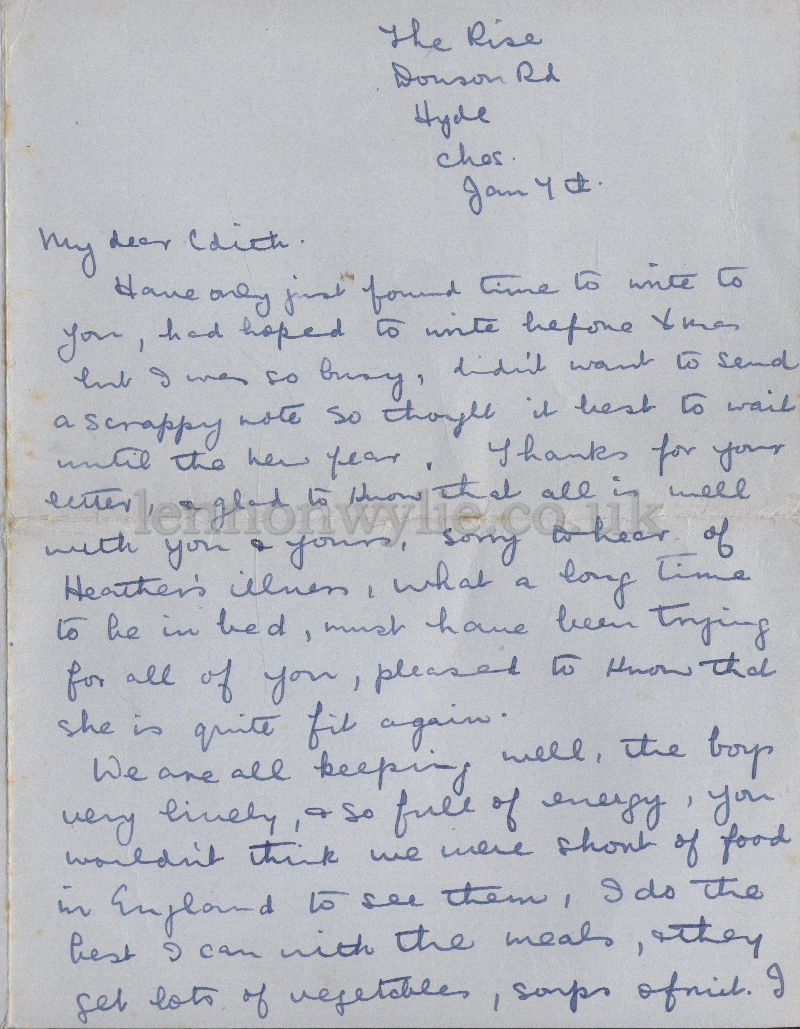 The Rise
Dowson Rd
Hyde
Ches.
Jan 7th.
My dear Edith.
Have only just found time to write to
you, had hoped to write before Xmas
but I was so busy, didn't want to send
a scrappy note so thought it best to wait
until the new year. Thanks for your
letter, & glad to know that all is well
lennonwylie.co.uk
with you & yours, sorry to hear of
Heather's illness, what a long time
to be in bed, must have been trying
for all of you, pleased to know that
she is quite fit again.
We are all keeping well, the boys
very lively, & so full of energy, you
wouldn't think we were short of food
in England to see them, I do the
best I can with the meals, & they
get lots of vegetables, soups & fruit. I